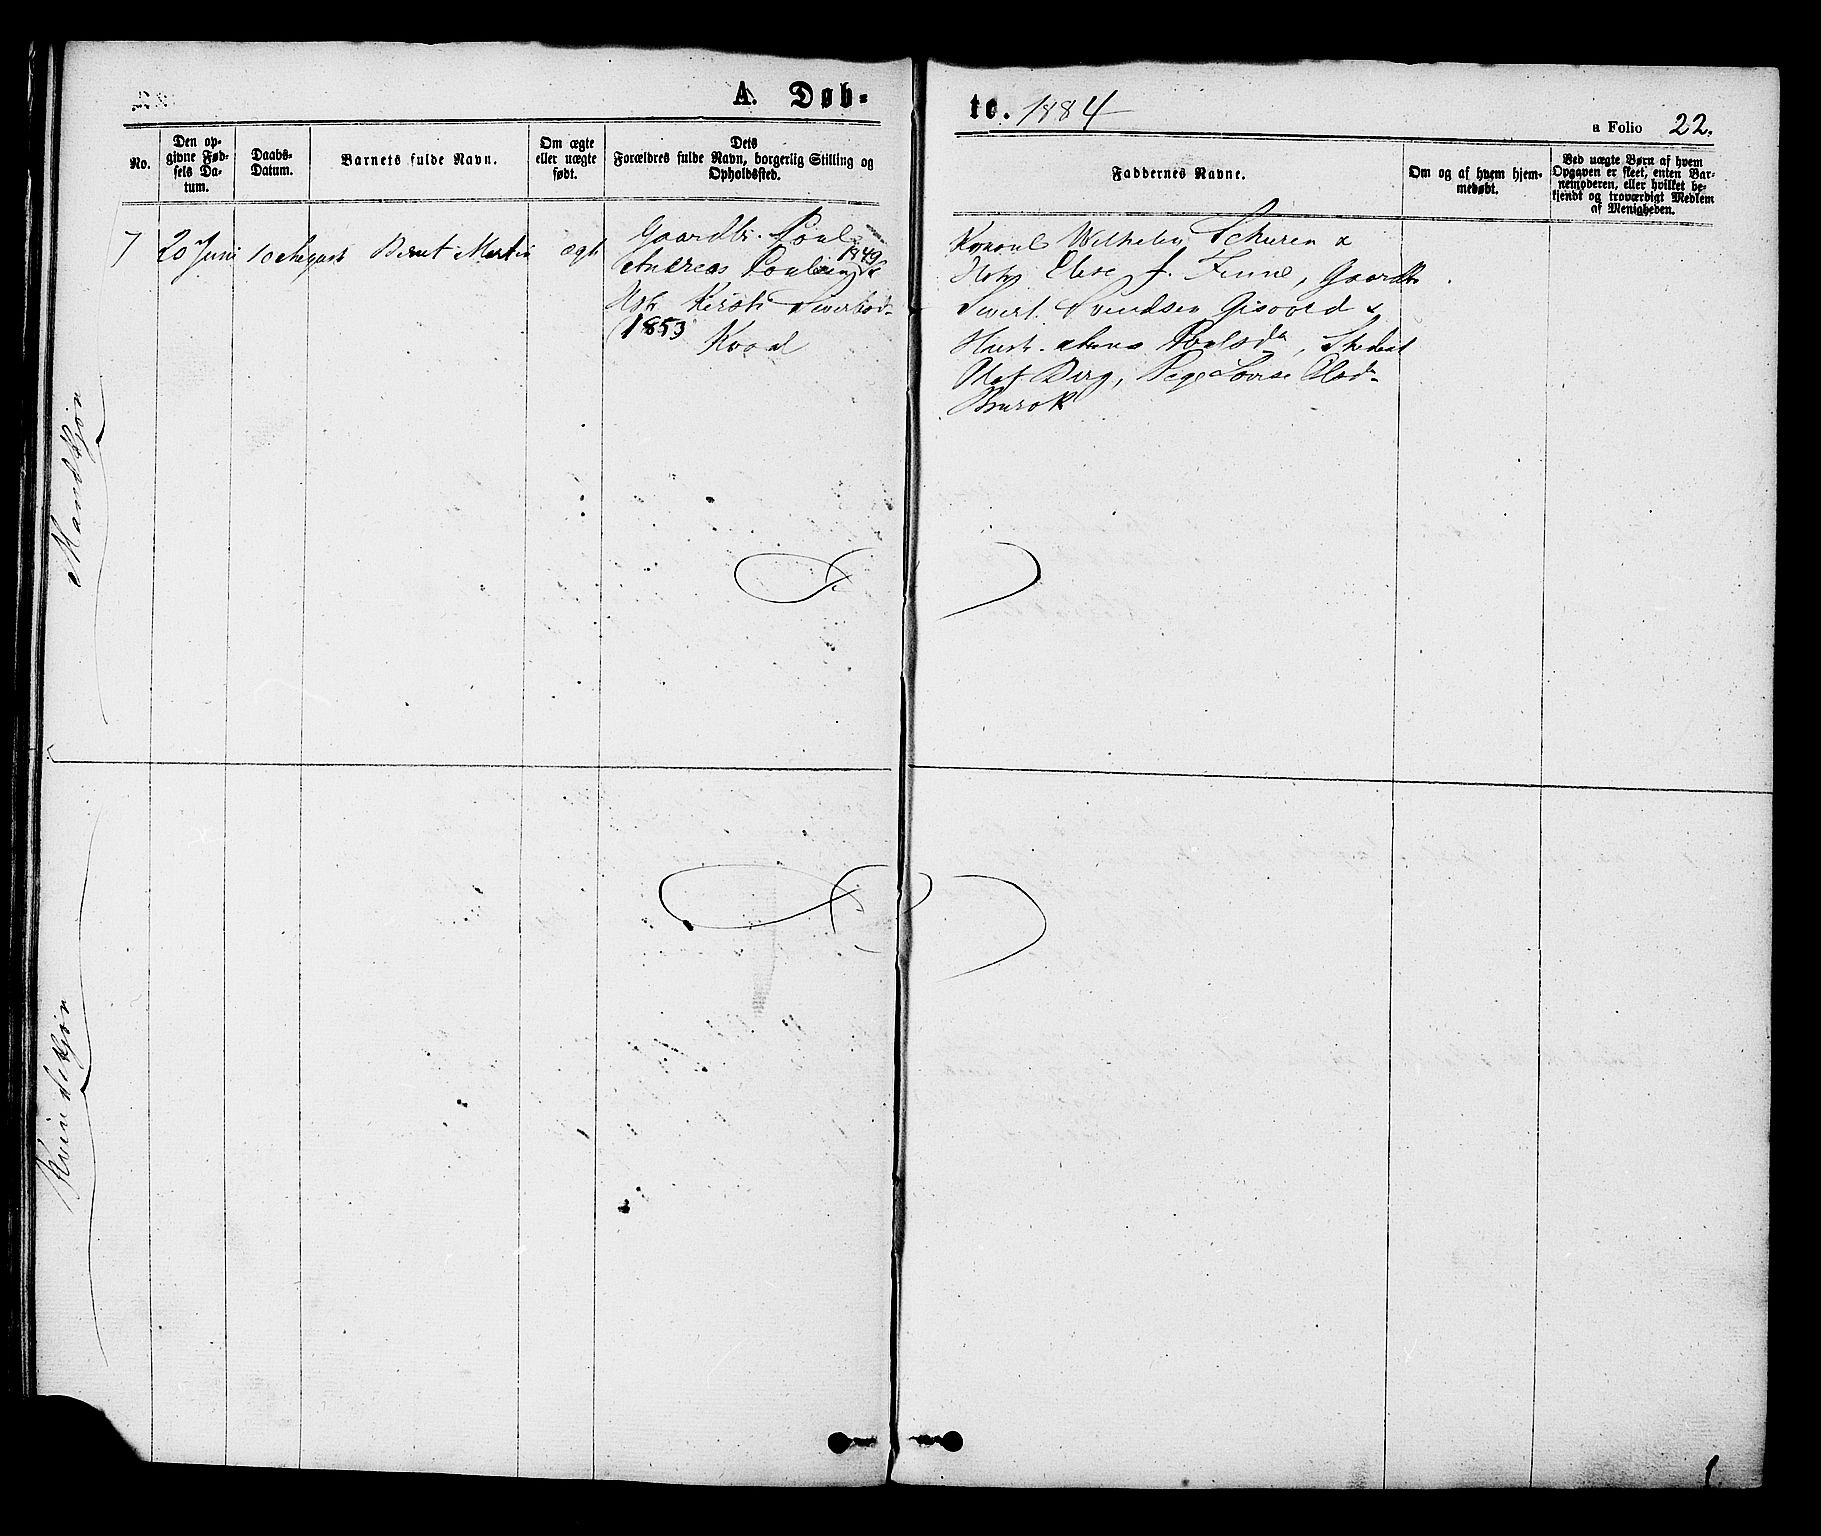 A. Døb-
te. 1884
a Folio 22.
No.
Den op-
givne Fød-
sels Da-
tum.
Daabs-
Datum.
Barnets fulde Navn.
Om ægte
eller uægte
født.
Dets
Forældres fulde Navn, borgerlig Stilling og
Opholdssted.
Faddernes Navne.
Om og af hvem hjem-
medøbt.
Ved uægte Børn af hvem
Opgaven er skeet, enten Bar-
nemoderen, eller hvilket be-
kjendt og troværdigt Medlem
af Menigheden.
Mandkjøn
7
20 Juni
10 August
Bernt Martin
ægt
Gaardbr. Poul
Andreas Poulsen 1849 &
Hstr Kirsti Sivertsd-
(1853
Kvaal
Konsul Wilhelm Schuren &
Hstr Elise f. Finne, Gaardbr
Sivert Svendsen Gisvold &
Hustr. Anna Poulsdr, Student
Olaf Berg, Pige Lovise Olsdr
Bierok
Kvindekjøn